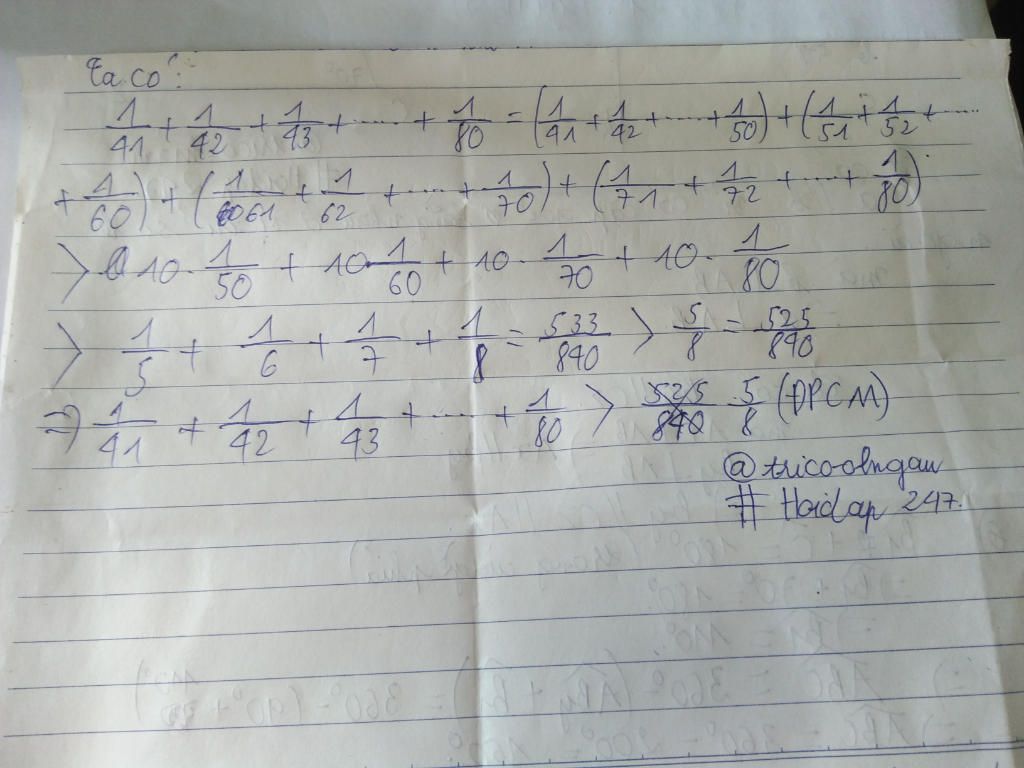 Ta có:
1/41 + 1/42 + 1/43 + ..... + 1/80 = (1/41 + 1/42 + ..... + 1/50) + (1/51 + 1/52 + .....
+ 1/60) + (1/61 + 1/62 + ..... + 1/70) + (1/71 + 1/72 + ..... + 1/80)
> 10 . 1/50 + 10 . 1/60 + 10 . 1/70 + 10 . 1/80
> 1/5 + 1/6 + 1/7 + 1/8 = 533/840 > 5/8 = 525/840
=> 1/41 + 1/42 + 1/43 + ..... + 1/80 > 5/8 (ĐPCM)
# Hoidap 247.